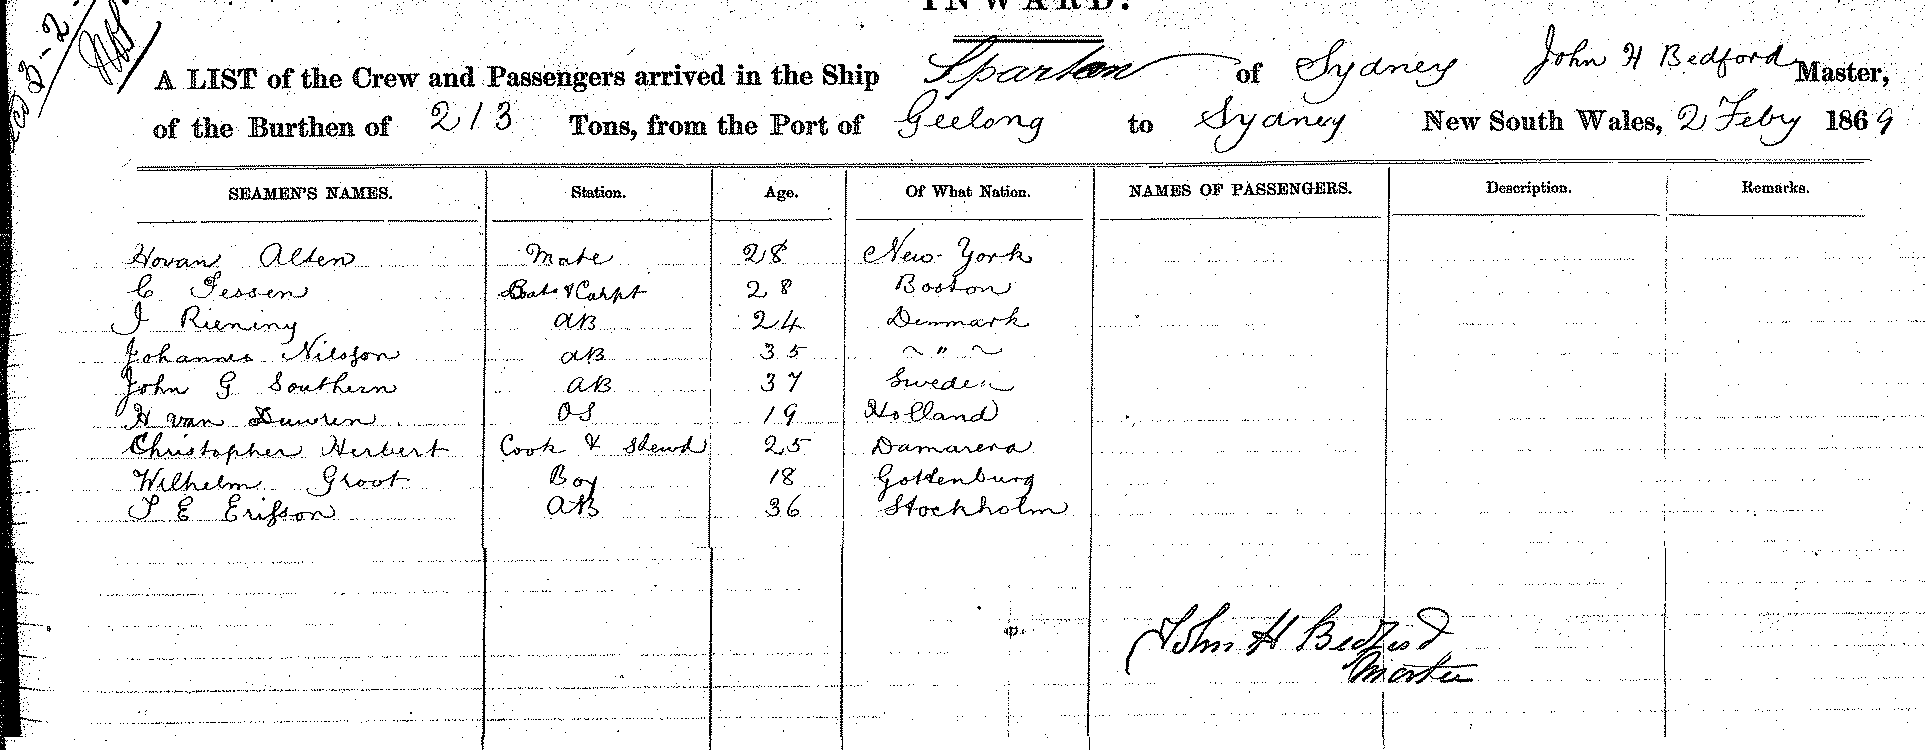 INWARD.
A LIST of the Crew and Passengers arrived in the Ship Spartan of Sydney John H Bedford Master,
of the Burthen of 213 Tons, from the Port of Geelong to Sydney New South Wales, 2 Feby 1869
SEAMEN'S NAMES. Station. Age. Of What Nation. NAMES OF PASSENGERS. Description. Remarks.
Hovan Alten Mate 28 New York
C Jessen Bats & Carpt 28 Boston
J Rieniny AB 24 Denmark
Johannes Nilsson AB 35 ~ " ~
John G Southern AB 37 Sweden
H van Duuren OS 19 Holland
Christopher Herbert Cook & Stewd 25 Damarera
Wilhelm Groot Boy 18 Gottenburg
T E Erisson AB 36 Stockholm
John H Bedford
Master